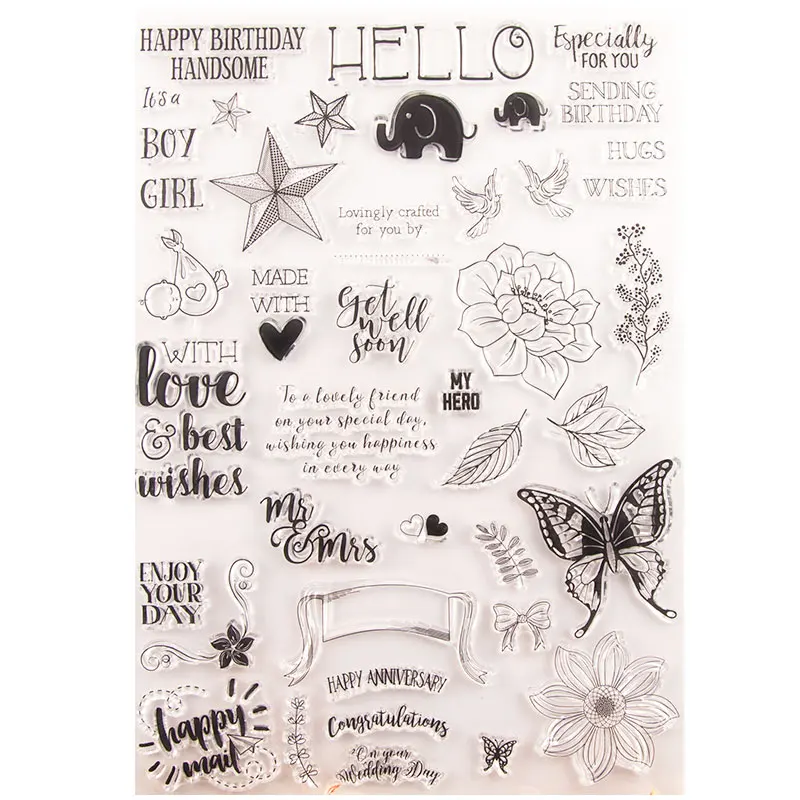 HAPPY BIRTHDAY
HANDSOME
HELLO
Especially
FOR YOU
It's a
SENDING
BIRTHDAY
BOY
HUGS
GIRL
WISHES
Lovingly crafted
for you by
MADE
WITH
Get
well
soon
WITH
love
& best
wishes
MY
HERO
To a lovely friend
on your special day,
wishing you happiness
in every way
Mr
& Mrs
ENJOY
YOUR
DAY
HAPPY ANNIVERSARY
Congratulations
On your
Wedding Day
happy
mail